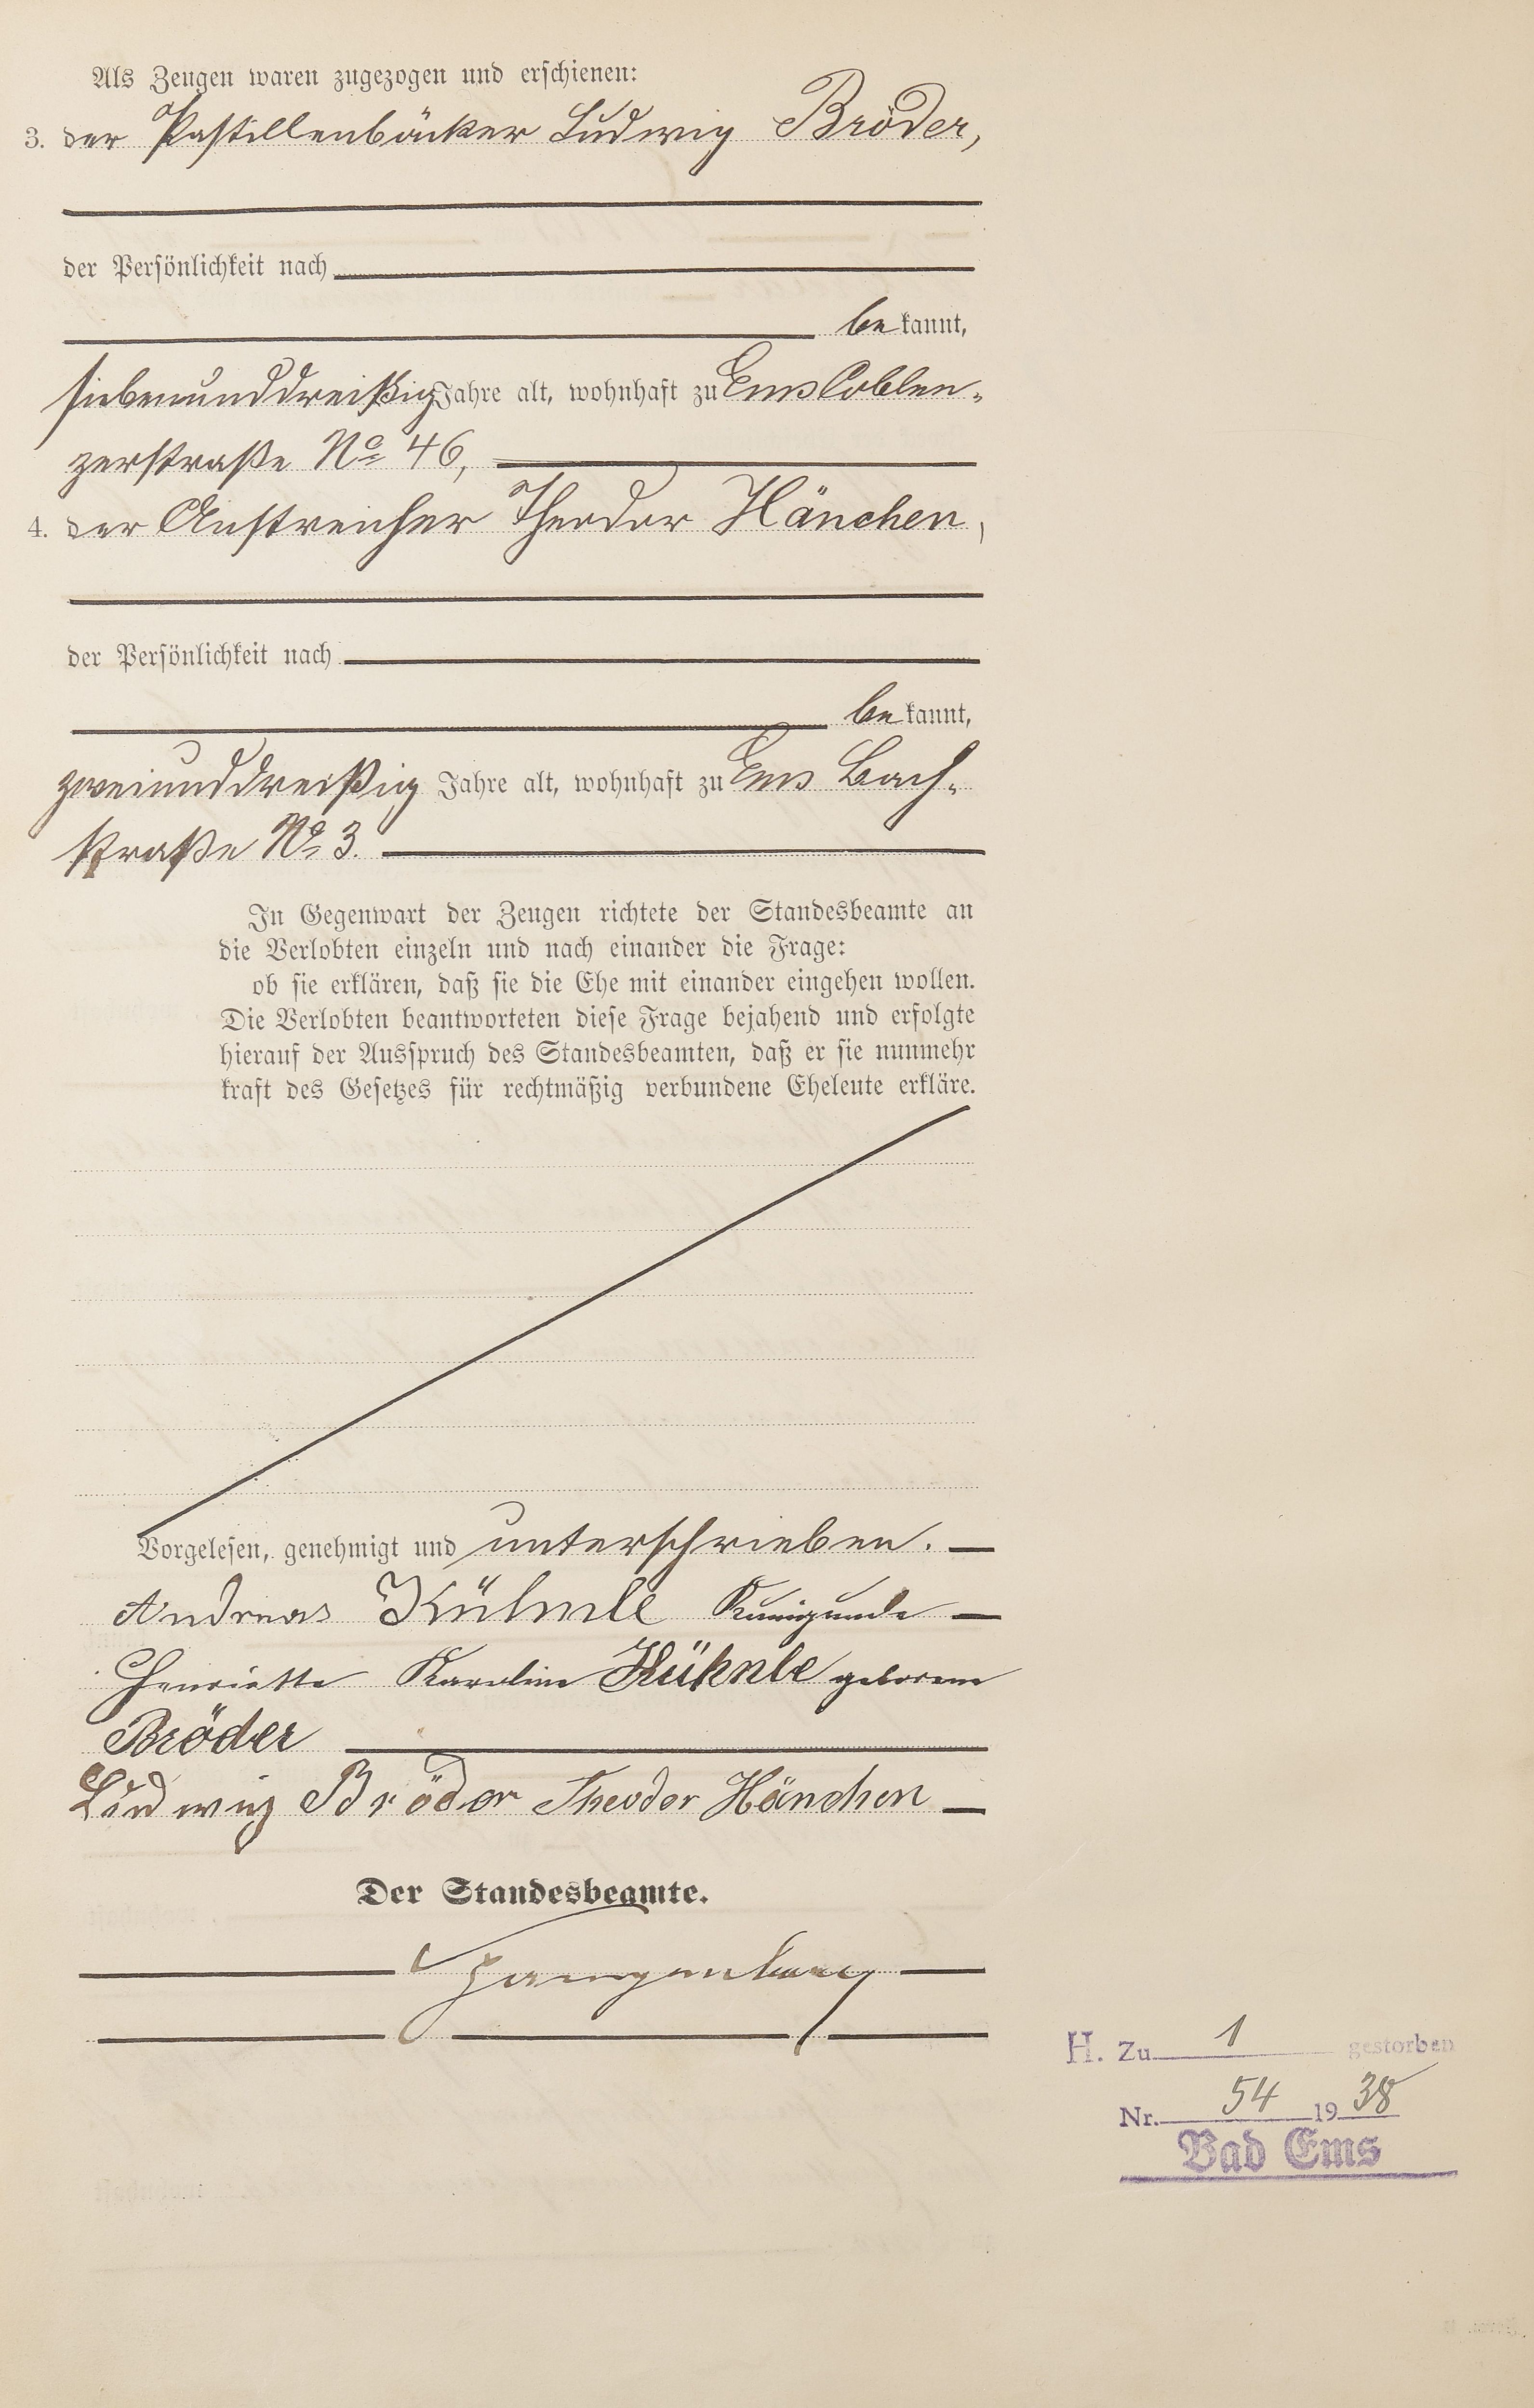 Als Zeugen waren zugezogen und erschienen:
3. der Pastillenbäcker Ludwig Bröder,
der Persönlichkeit nach
bekannt,
siebenunddreißig Jahre alt, wohnhaft zu Ems Coblen-
zerstraße No 46,
4. der Anstreicher Theodor Hänchen,
der Persönlichkeit nach
bekannt,
zweiunddreißig Jahre alt, wohnhaft zu Ems Bach-
straße No 3.
In Gegenwart der Zeugen richtete der Standesbeamte an
die Verlobten einzeln und nach einander die Frage:
ob sie erklären, daß sie die Ehe mit einander eingehen wollen.
Die Verlobten beantworteten diese Frage bejahend und erfolgte
hierauf der Ausspruch des Standesbeamten, daß er sie nunmehr
kraft des Gesetzes für rechtmäßig verbundene Eheleute erkläre.
Vorgelesen, genehmigt und unterschrieben.
Andreas Kühnle Kunigunde
Henriette Karoline Kühnle geborene
Bröder
Ludwig Bröder Theodor Hänchen
Der Standesbeamte.
H. Zu 1 gestorben
Nr. 54 1938
Bad Ems